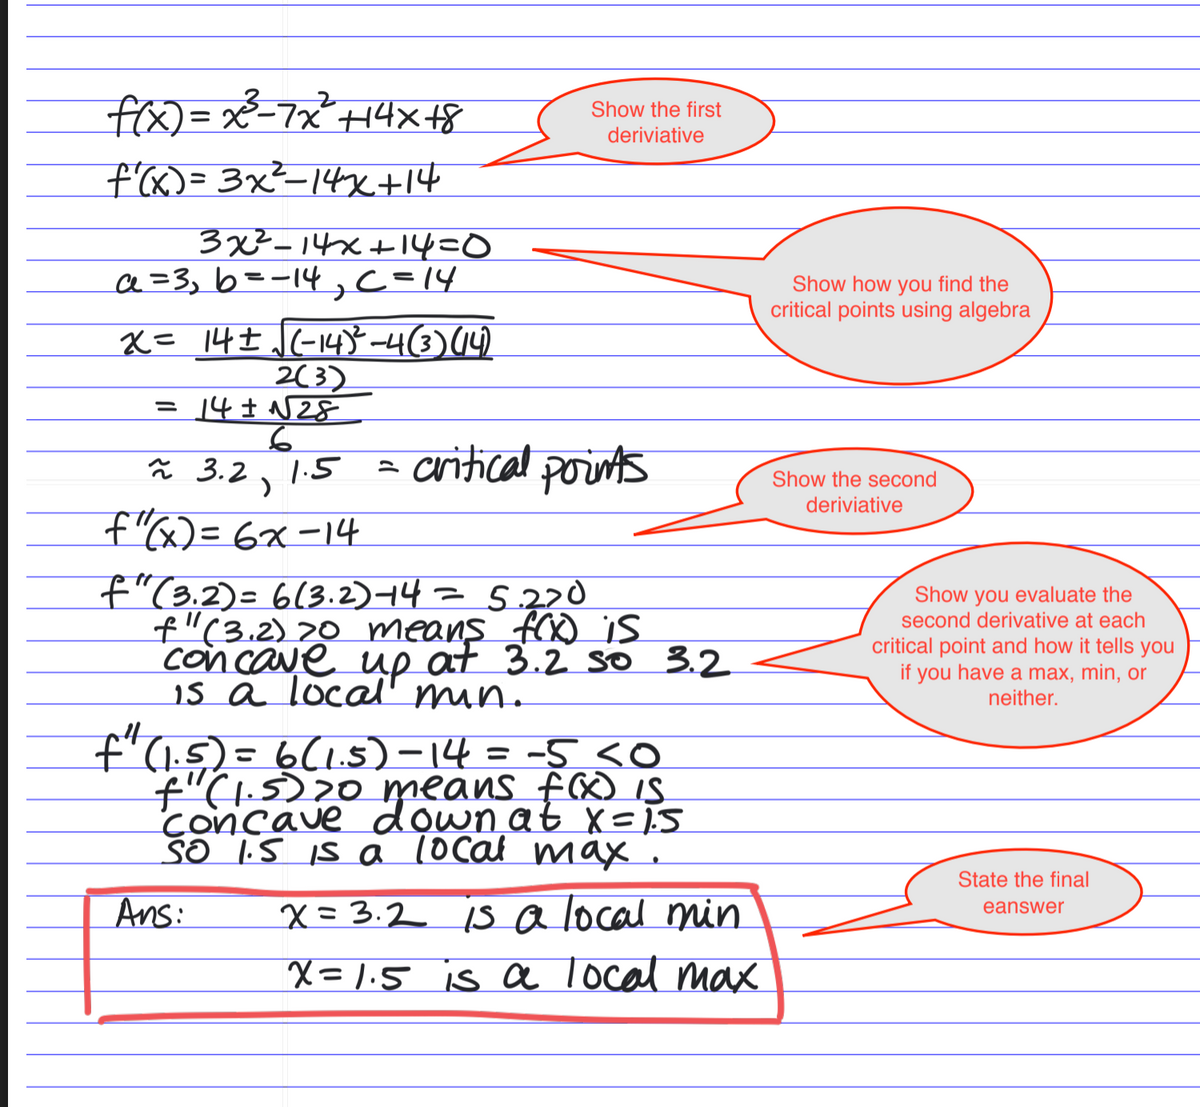 f(x) = x³-7x²+14x+8
Show the first
deriviative
f'(x) = 3x²-14x+14
3x²-14x+14=0
a=3, b=-14, c=14
Show how you find the
critical points using algebra
x = 14 ± √(-14)²-4(3)(14)
2(3)
= 14 ± √28
6
≈ 3.2, 1.5 = critical points
Show the second
deriviative
f"(x) = 6x-14
f"(3.2) = 6(3.2)-14 = 5.2>0
f"(3.2)>0 means f(x) is
concave up at 3.2 so 3.2
is a local min.
Show you evaluate the
second derivative at each
critical point and how it tells you
if you have a max, min, or
neither.
f"(1.5) = 6(1.5)-14 = -5 <0
f"(1.5)>0 means f(x) is
concave down at x=1.5
so 1.5 is a local max.
State the final
eanswer
Ans: x = 3.2 is a local min
x = 1.5 is a local max